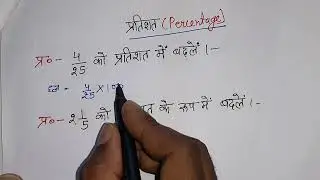 प्रतिशत (Percentage)
प्र०- 4/25 को प्रतिशत में बदलें।-
हल - 4/25 ×100
प्र०- 2 1/5 को के रूप में बदलें।-